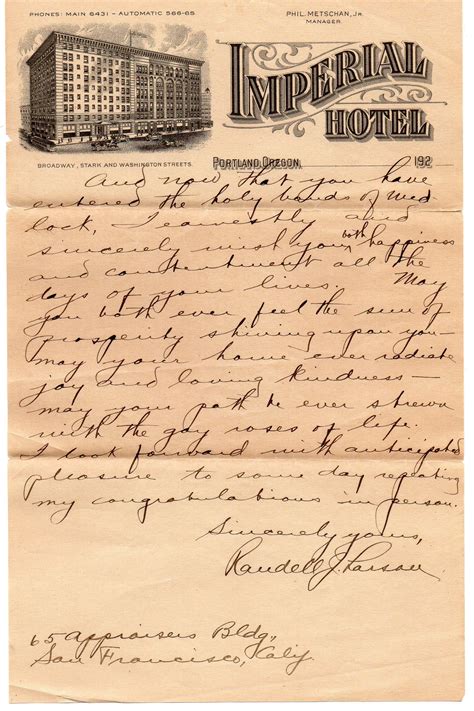 PHONES: MAIN 6431 - AUTOMATIC 566-65.
PHIL. METSCHAN, JR.
MANAGER.
IMPERIAL
HOTEL
BROADWAY, STARK AND WASHINGTON STREETS.
PORTLAND, OREGON, 192
And now that you have
entered the holy bonds of wed
lock, I earnestly and
sincerely wish you both happiness
and contentment all the
days of your lives. May
you both ever feel the sun of
prosperity shining upon you—
may your home ever radiate
joy and loving kindness—
may your path be ever strewn
with the gay roses of life.
I look forward with anticipated
pleasure to some day repeating
my congratulations in person.
Sincerely yours,
Randell J. Larson
65 Appraisers Bldg,
San Francisco, Calif.